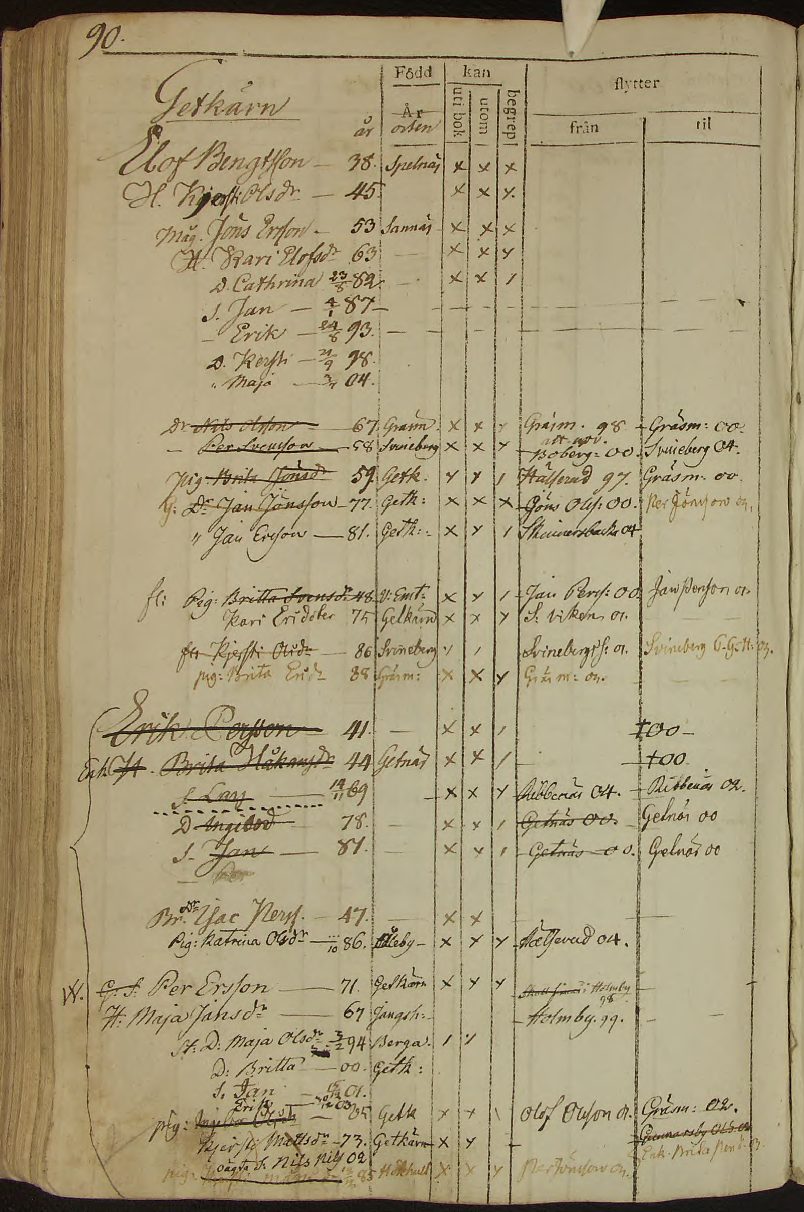 90.
Född kan flytter
Getkärn
År orten uti bok utom begrep från til
år
Elof Bengtsson — 38. Spelnäs x x x
H. Kjersti Olsdr — 45. x x x
Måg. Jöns Ersson — 53 Sannäs x x x
H. Kari Elofsdr 63 — x x y
D. Cathrina 23/8 82 — x x /
S. Jan — 4/1 87 —
— Erik — 24/8 93. —
D. Kersti — 98.
" Maja — 04.
Dr Nils Olsson — 67. Gräsm. x x y Gräsm. 98 Gräsm: 00.
— Per Svensson — 58 Svineberg x x y Boberg: 00. Svineberg 04.
Pig Brita Jönsdr 59 Getk. y y / Hälserud 97. Gräsm: 00.
Dr Jan Jönsson — 77. Getk: x x x Jöns Ols: 00. Per Jönsson
" Jan Ersson — 81. Getk: x y / Skinnersbacka 04
fl: Pig: Britta Svensdr 48 V: Emt: x y / Jan Perss: 00 Jan Person 01.
Kari Ersdoter 75 Getkärn x x y S. Viken 01.
Kjersti Olsdr — 86 Svineberg / / Svineberg S: 01. Svineberg
pig: Brita Ersdr 88 Gräsm: x x y Gräsm:
Erik Persson — 41. — x x / †00 —
Enk. H. Brita Håkansdr 44 Getnäs x x / — †00.
S. Lars — 14/11 69 — x x y Ribbenäs 04. Ribbenäs 02.
D Ingebor — 78. x x / Getnäs 00. Getnäs 00
S. Jan — 81. — x x / Getnäs 00. Getnäs 00
— Per
Br. Isac Perss. — 47. — x x
Pig: Katrina Olsdr — 86. Åleby — x x y Hälserud 04.
W. G. S. Per Ersson — 71. Getkärn x y y Holmby 98
H: Maja Jansdr — 67 Jangsh: — Holmby. 99. — —
St: D: Maja Olsdr 3/2 94 Berga. / y
D: Britta — 00. Getk:
S. Jan — 01.
Erik — 03.
pig: — 85 Getk x x \ Olof Olsson 01. Gräsm: 02.
Kjersti Mattsdr — 73. Getkärn x y — Gunnarsby
oägta S. Nils Nils 02 Enk. Brita
pig: 85 x x y Per Jönsson